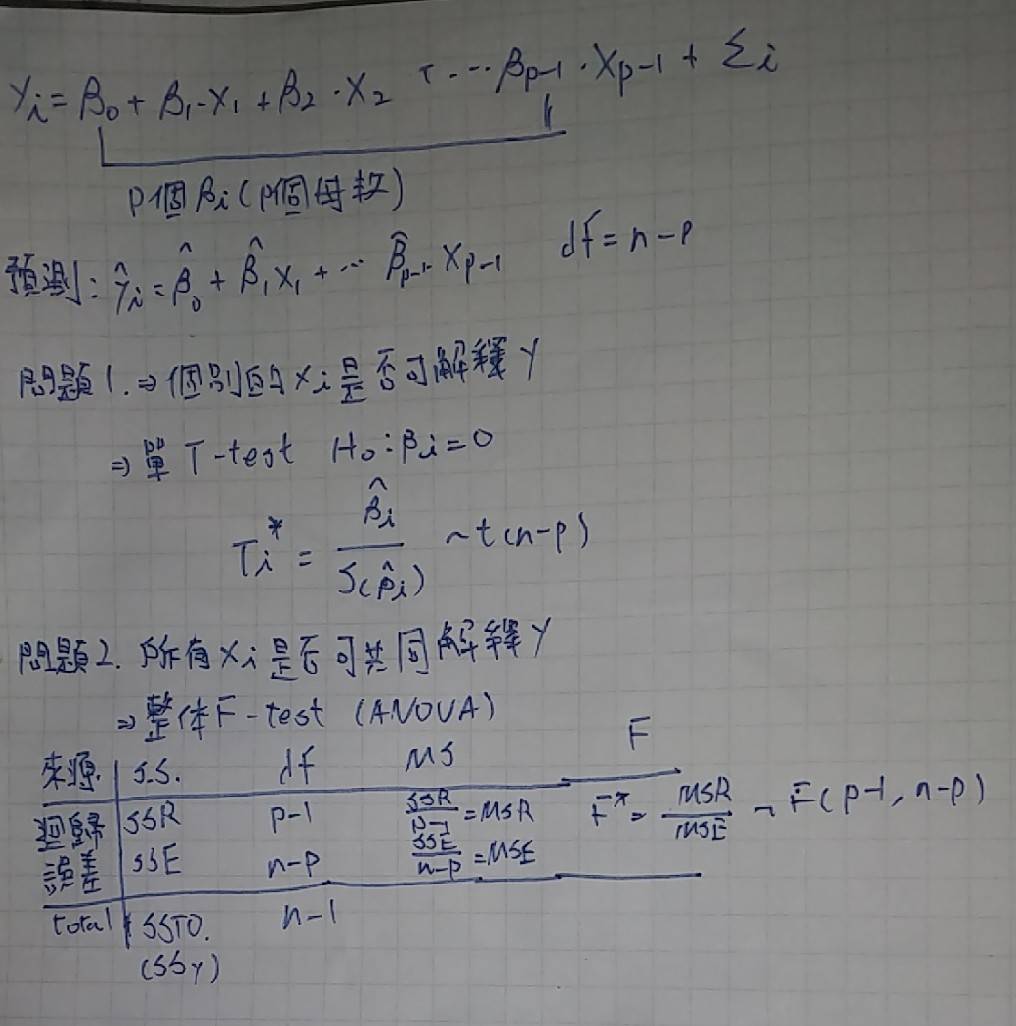 Yi = β0 + β1·X1 + β2·X2 + ... βp-1·Xp-1 + Σi
P個βi(P個母數)
預測: Ŷi = β̂0 + β̂1X1 + ... β̂p-1·Xp-1 df = n-p
問題1. ⇒ 個別的Xi是否可解釋Y
⇒ 單T-test H0: βi = 0
Ti* = β̂i / S(β̂i) ~ t(n-p)
問題2. 所有Xi是否可共同解釋Y
⇒ 整体F-test (ANOVA)
來源 S.S. df MS F
迴歸 SSR p-1 SSR/p-1 = MSR F* = MSR/MSE ~ F(p-1, n-p)
誤差 SSE n-p SSE/n-p = MSE
total SSTO. n-1
(SSY)